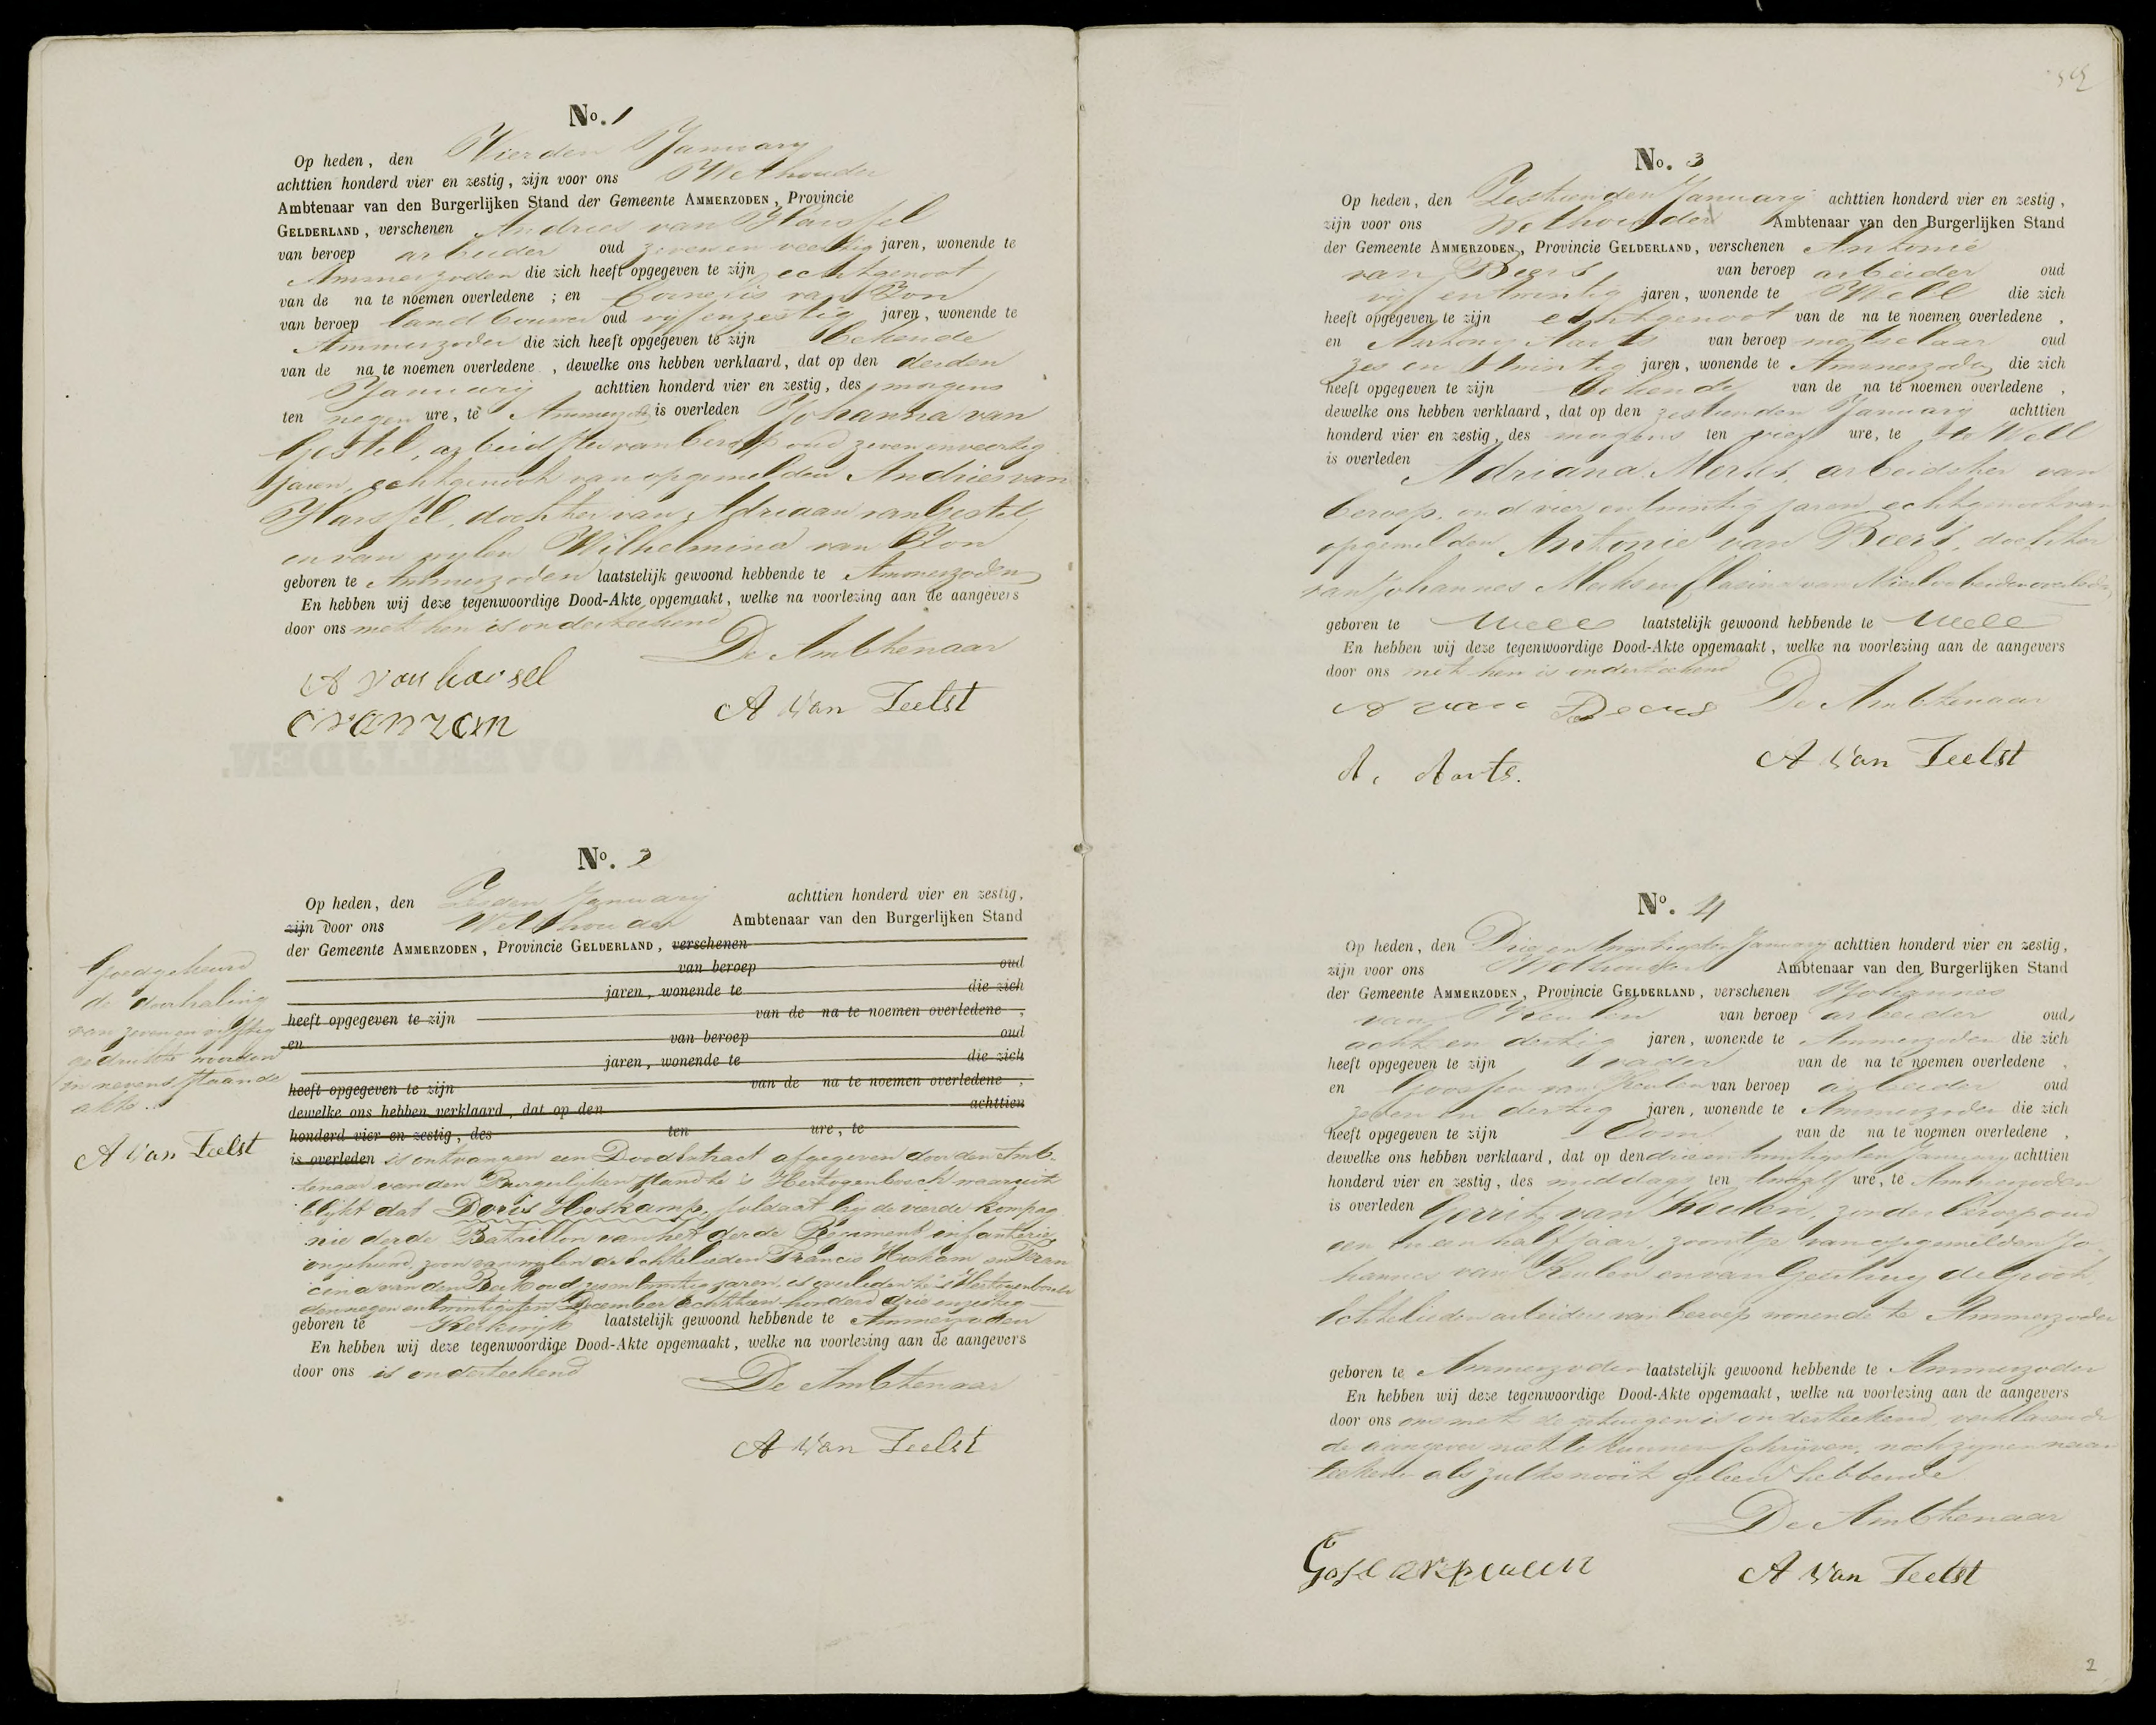 No. 1
Op heden, den Vierden January
achttien honderd vier en zestig, zijn voor ons Wethouder
Ambtenaar van den Burgerlijken Stand der Gemeente AMMERZODEN, Provincie
GELDERLAND, verschenen Andries van Harssel
van beroep arbeider oud zeven en veertig jaren, wonende te
Ammerzoden die zich heeft opgegeven te zijn echtgenoot
van de na te noemen overledene ; en Cornelis van Zon
van beroep landbouwer oud vijf en zestig jaren, wonende te
Ammerzoden die zich heeft opgegeven te zijn bekende
van de na te noemen overledene , dewelke ons hebben verklaard, dat op den derden
January achttien honderd vier en zestig, des morgens
ten negen ure, te Ammerzoden is overleden Johanna van
Gestel, arbeidster van beroep oud zeven en veertig
jaren, echtgenoot van opgemelden Andries van
Harssel, dochter van Adriaan van Gestel
en van wijlen Wilhelmina van Zon
geboren te Ammerzoden laatstelijk gewoond hebbende te Ammerzoden
En hebben wij deze tegenwoordige Dood-Akte opgemaakt, welke na voorlezing aan de aangevers
door ons met hen is onderteekend
De Ambtenaar
A van harsel
c van zon
A Van Teelst
No. 2
Op heden, den Zesden January achttien honderd vier en zestig,
zijn voor ons Wethouder Ambtenaar van den Burgerlijken Stand
der Gemeente AMMERZODEN, Provincie GELDERLAND, verschenen
van beroep oud
jaren, wonende te die zich
heeft opgegeven te zijn van de na te noemen overledene ,
en van beroep oud
jaren, wonende te die zich
heeft opgegeven te zijn van de na te noemen overledene ,
dewelke ons hebben verklaard, dat op den achttien
honderd vier en zestig, des ten ure, te
is overleden is ontvangen een Doodextract afgegeven door den Amb-
tenaar van den Burgerlijken Stand te 's Hertogenbosch waaruit
blijkt dat Doris Hoskamp, soldaat bij de vierde kompag
nie derde Bataillon van het derde Regiment infanterie,
ongehuwd, zoon van wijlen de Echtelieden Francis en Fran
cina van den oud jaren, is overleden te 's Hertogenbosch
den negen en twintigsten December achttien honderd drie en zestig
geboren te Kerkwijk laatstelijk gewoond hebbende te Ammerzoden
En hebben wij deze tegenwoordige Dood-Akte opgemaakt, welke na voorlezing aan de aangevers
door ons is onderteekend
De Ambtenaar
A Van Teelst
Goedgekeurd
de doorhaling
van zeven en vijftig
gedrukte woorden
in nevenstaande
akte.
A Van Teelst
No. 3
Op heden, den Zestienden January achttien honderd vier en zestig,
zijn voor ons Wethouder Ambtenaar van den Burgerlijken Stand
der Gemeente AMMERZODEN, Provincie GELDERLAND, verschenen Antonie
van Beers van beroep arbeider oud
vijf en twintig jaren, wonende te Well die zich
heeft opgegeven te zijn echtgenoot van de na te noemen overledene ,
en Antony Aarts van beroep metselaar oud
zes en twintig jaren, wonende te Ammerzoden die zich
heeft opgegeven te zijn bekende van de na te noemen overledene ,
dewelke ons hebben verklaard, dat op den zestienden January achttien
honderd vier en zestig, des morgens ten vier ure, te Well
is overleden Adriana arbeidster van
beroep, oud vier en twintig jaren echtgenoot van
opgemelden Antonie van Beers, dochter
van Johannes
geboren te Well laatstelijk gewoond hebbende te Well
En hebben wij deze tegenwoordige Dood-Akte opgemaakt, welke na voorlezing aan de aangevers
door ons met hen is onderteekend
De Ambtenaar
A van Beers
A. Aarts.
A Van Teelst
No. 4
Op heden, den Drie en twintigsten January achttien honderd vier en zestig,
zijn voor ons Wethouder Ambtenaar van den Burgerlijken Stand
der Gemeente AMMERZODEN, Provincie GELDERLAND, verschenen Johannes
van Keulen van beroep arbeider oud
acht en dertig jaren, wonende te Ammerzoden die zich
heeft opgegeven te zijn vader van de na te noemen overledene ,
en Goossen van Keulen van beroep arbeider oud
zeven en dertig jaren, wonende te Ammerzoden die zich
heeft opgegeven te zijn Oom van de na te noemen overledene ,
dewelke ons hebben verklaard, dat op den drie en twintigsten January achttien
honderd vier en zestig, des middags ten twaalf ure, te Ammerzoden
is overleden Gerrit van Keulen, zonder beroep oud
een en een half jaar, zoontje van opgemelden Jo-
hannes van Keulen en van Geertruy de Groot,
Echtelieden arbeiders van beroep wonende te Ammerzoden
geboren te Ammerzoden laatstelijk gewoond hebbende te Ammerzoden
En hebben wij deze tegenwoordige Dood-Akte opgemaakt, welke na voorlezing aan de aangevers
door ons met de getuigen is onderteekend, verklarende
de aangever niet te kunnen schrijven, noch zijnen naam
teekenen als zulks nooit geleerd hebbende
De Ambtenaar
A Van Teelst
2